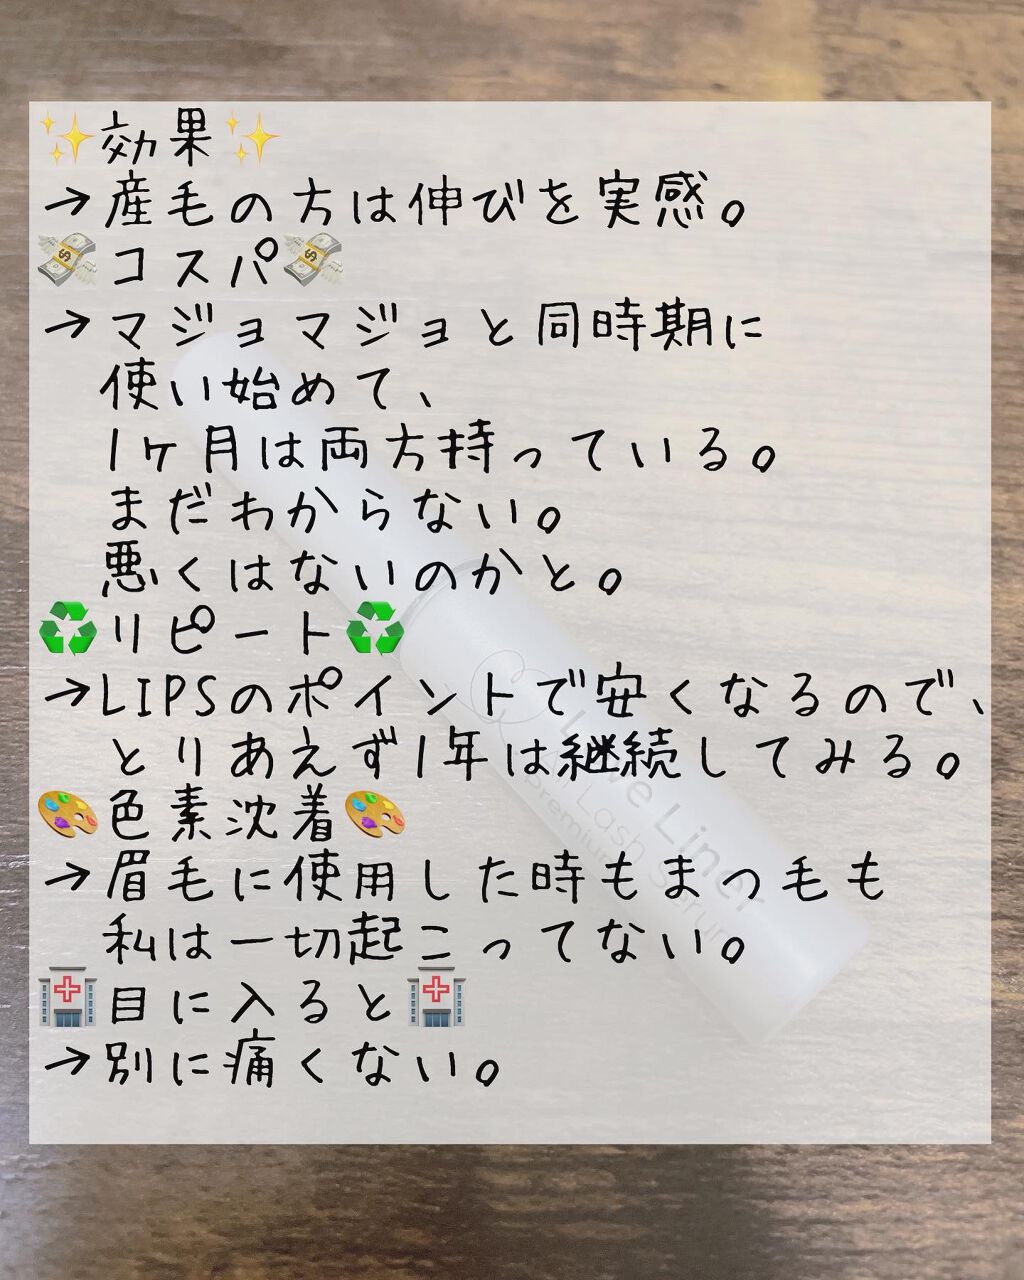 ✨効果✨
→産毛の方は伸びを実感。
💸コスパ💸
→マジョマジョと同時期に
使い始めて、
1ヶ月は両方持っている。
まだわからない。
悪くはないのかと。
♻️リピート♻️
→LIPSのポイントで安くなるので、
とりあえず1年は継続してみる。
🎨色素沈着🎨
→眉毛に使用した時もまつ毛も
私は一切起こってない。
🏥目に入ると🏥
→別に痛くない。
Liner
Lash Serum
Premium